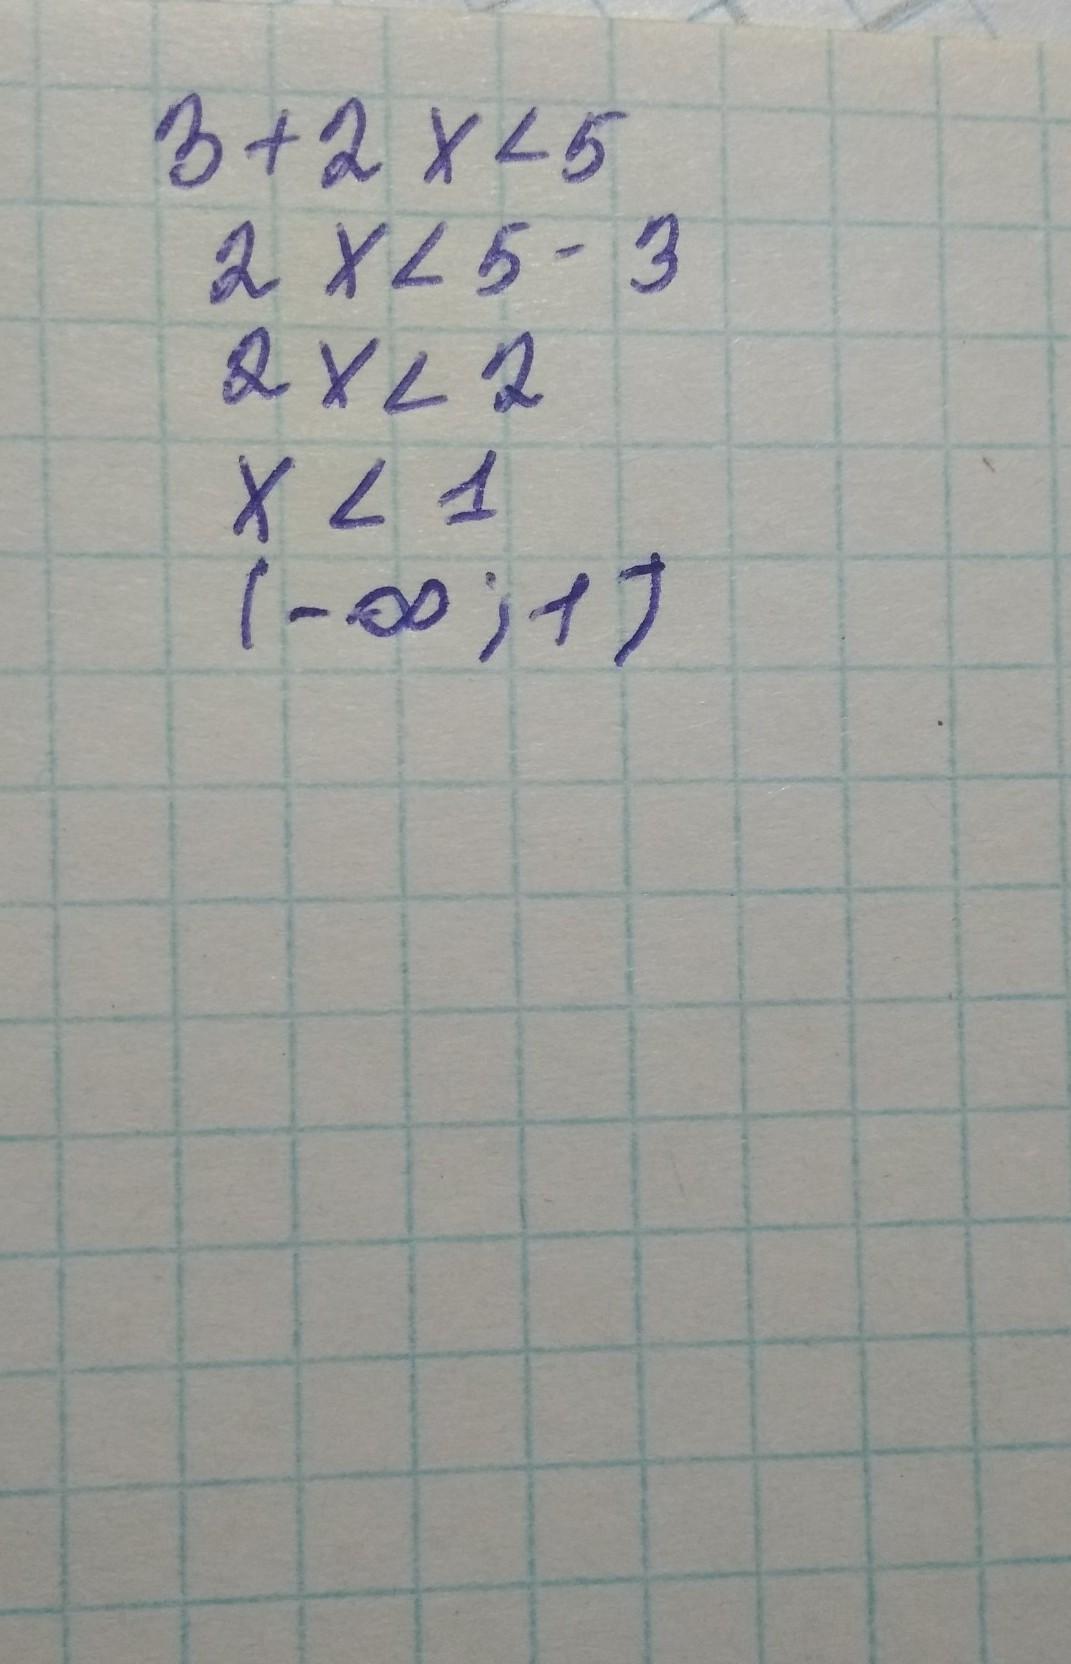 3+2x<5
2x<5-3
2x<2
x<1
(-∞;1]